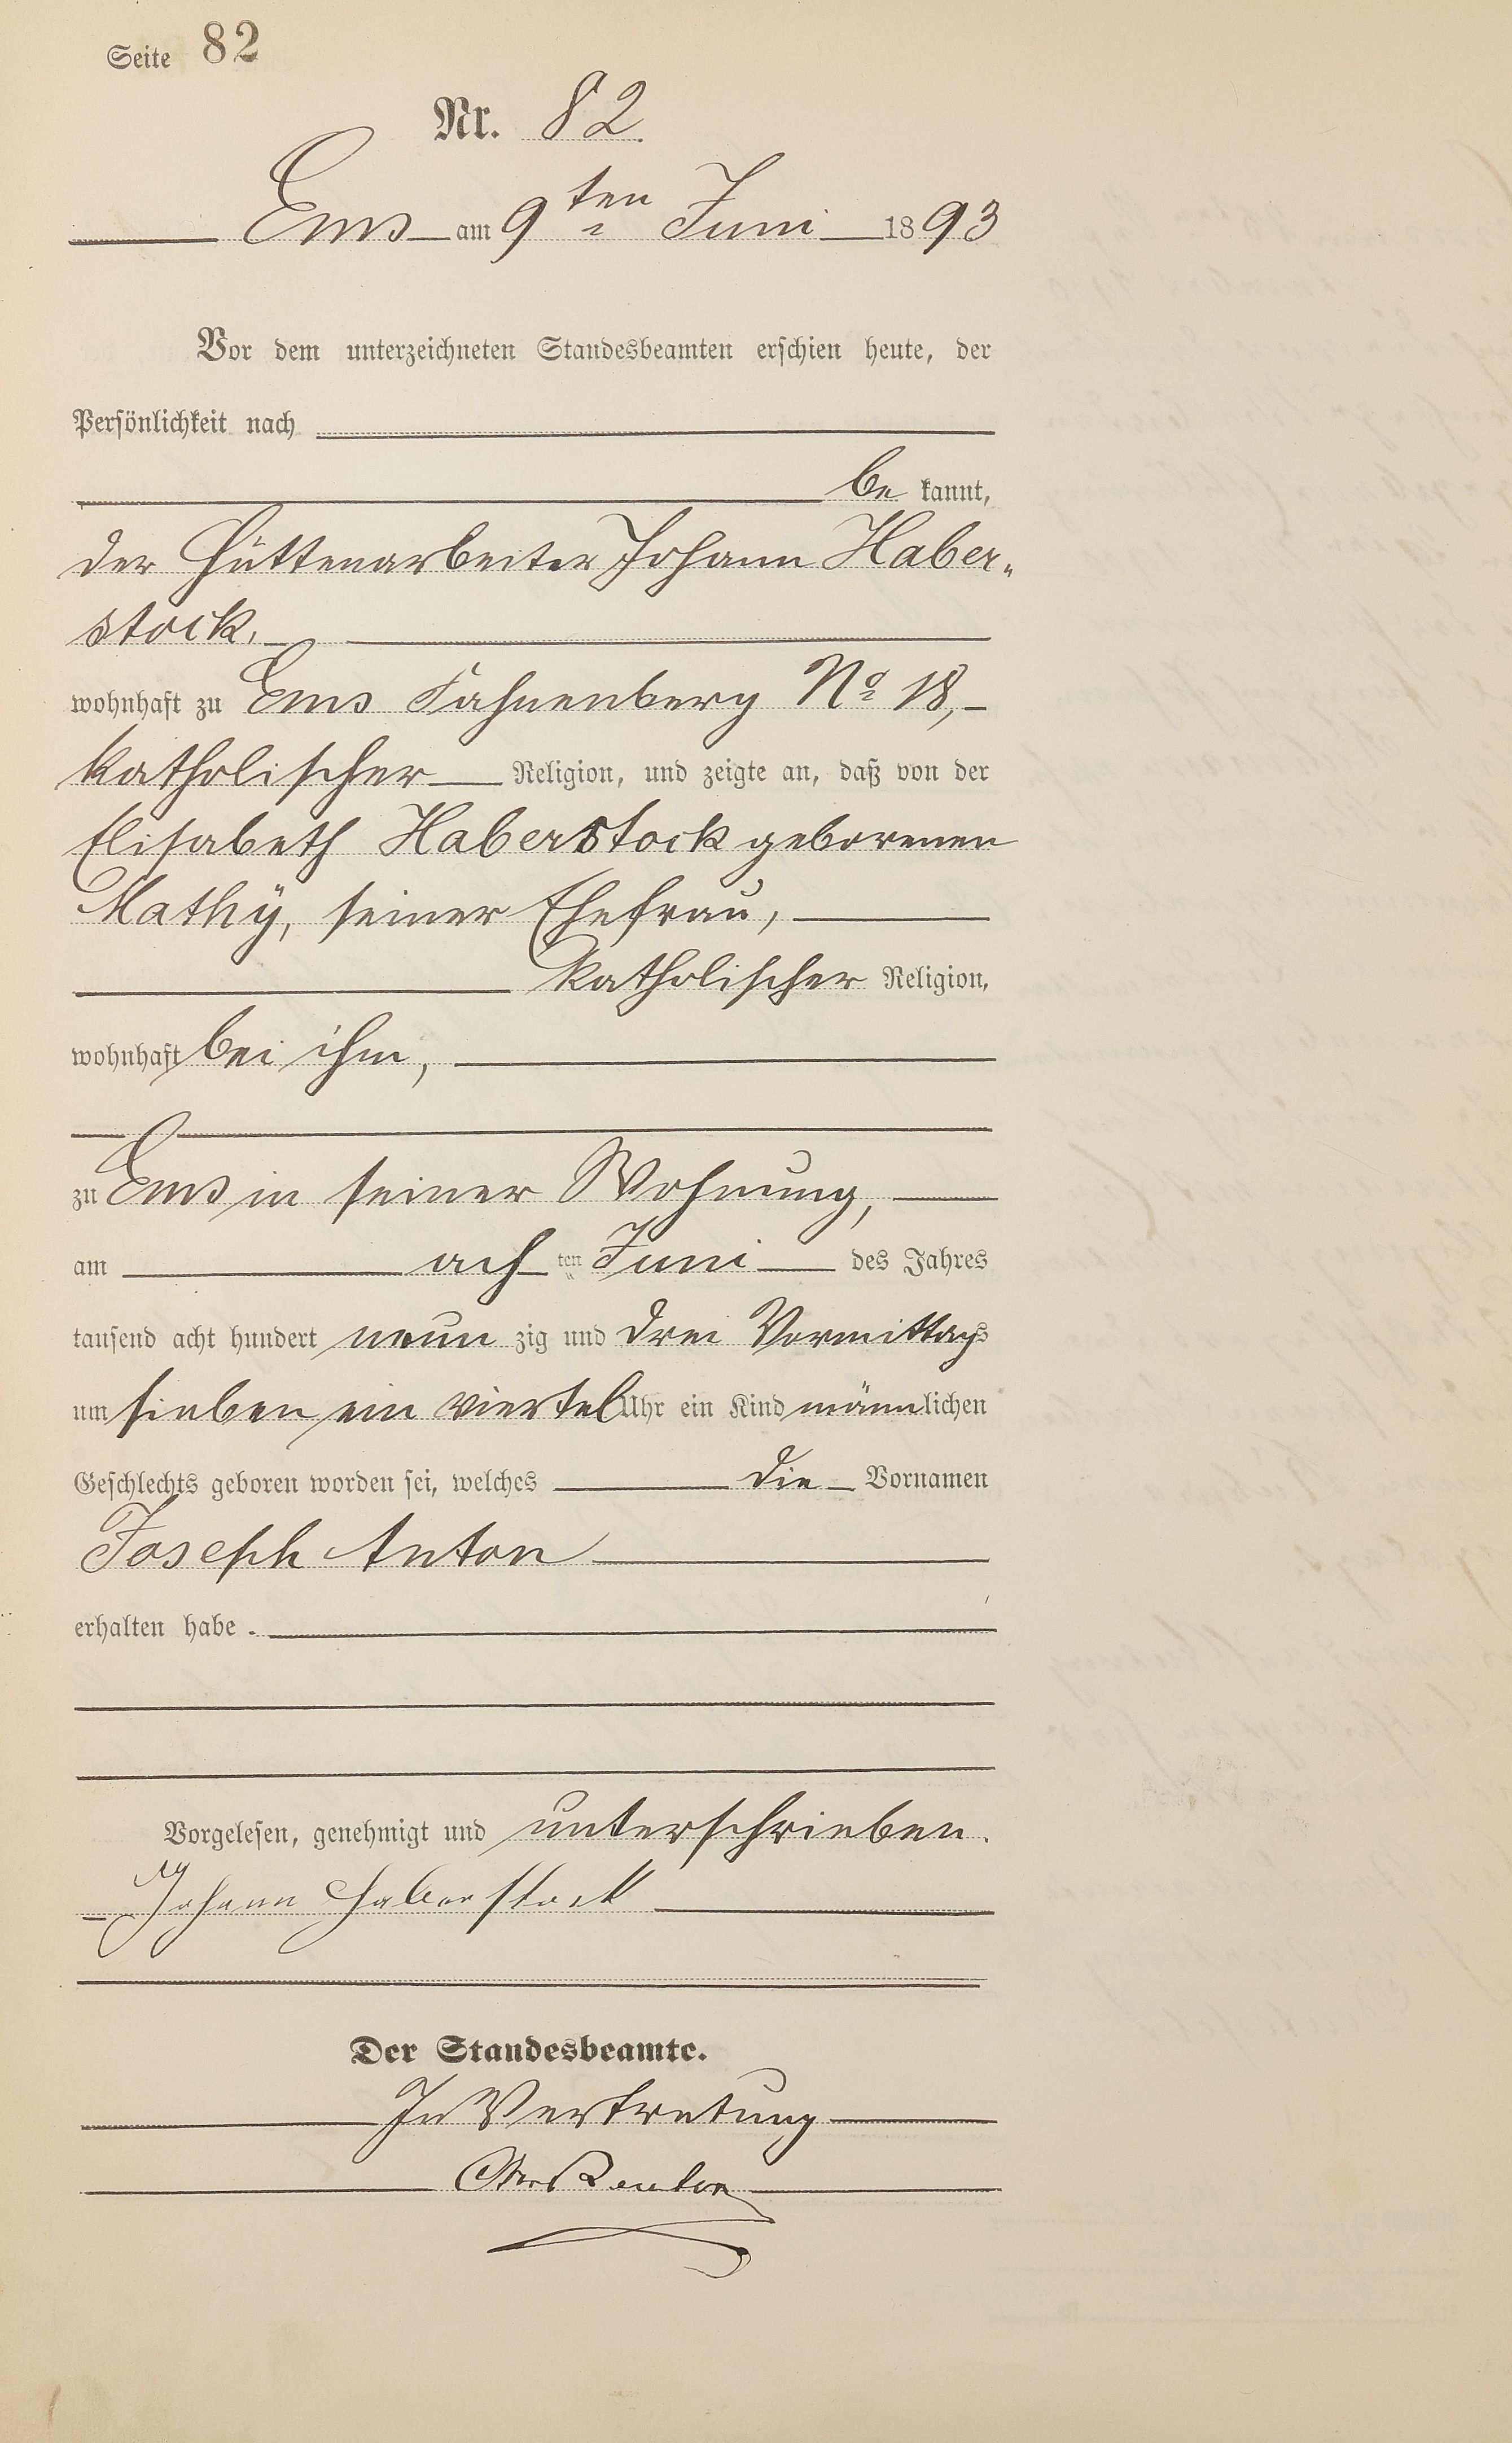 Seite 82
Nr. 82
Ems am 9ten Juni 1893
Vor dem unterzeichneten Standesbeamten erschien heute, der
Persönlichkeit nach
be kannt,
der Hüttenarbeiter Johann Haber-
stock,
wohnhaft zu Ems Fahnenberg No 18,
katholischer Religion, und zeigte an, daß von der
Elisabeth Haberstock geborenen
Mathÿ, seiner Ehefrau,
katholischer Religion,
wohnhaft bei ihm,
zu Ems in seiner Wohnung,
am ach ten Juni des Jahres
tausend acht hundert neun zig und drei Vormittags
um sieben ein viertel Uhr ein Kind männlichen
Geschlechts geboren worden sei, welches die Vornamen
Joseph Anton
erhalten habe.
Vorgelesen, genehmigt und unterschrieben.
Johann Haberstock
Der Standesbeamte.
In Vertretung